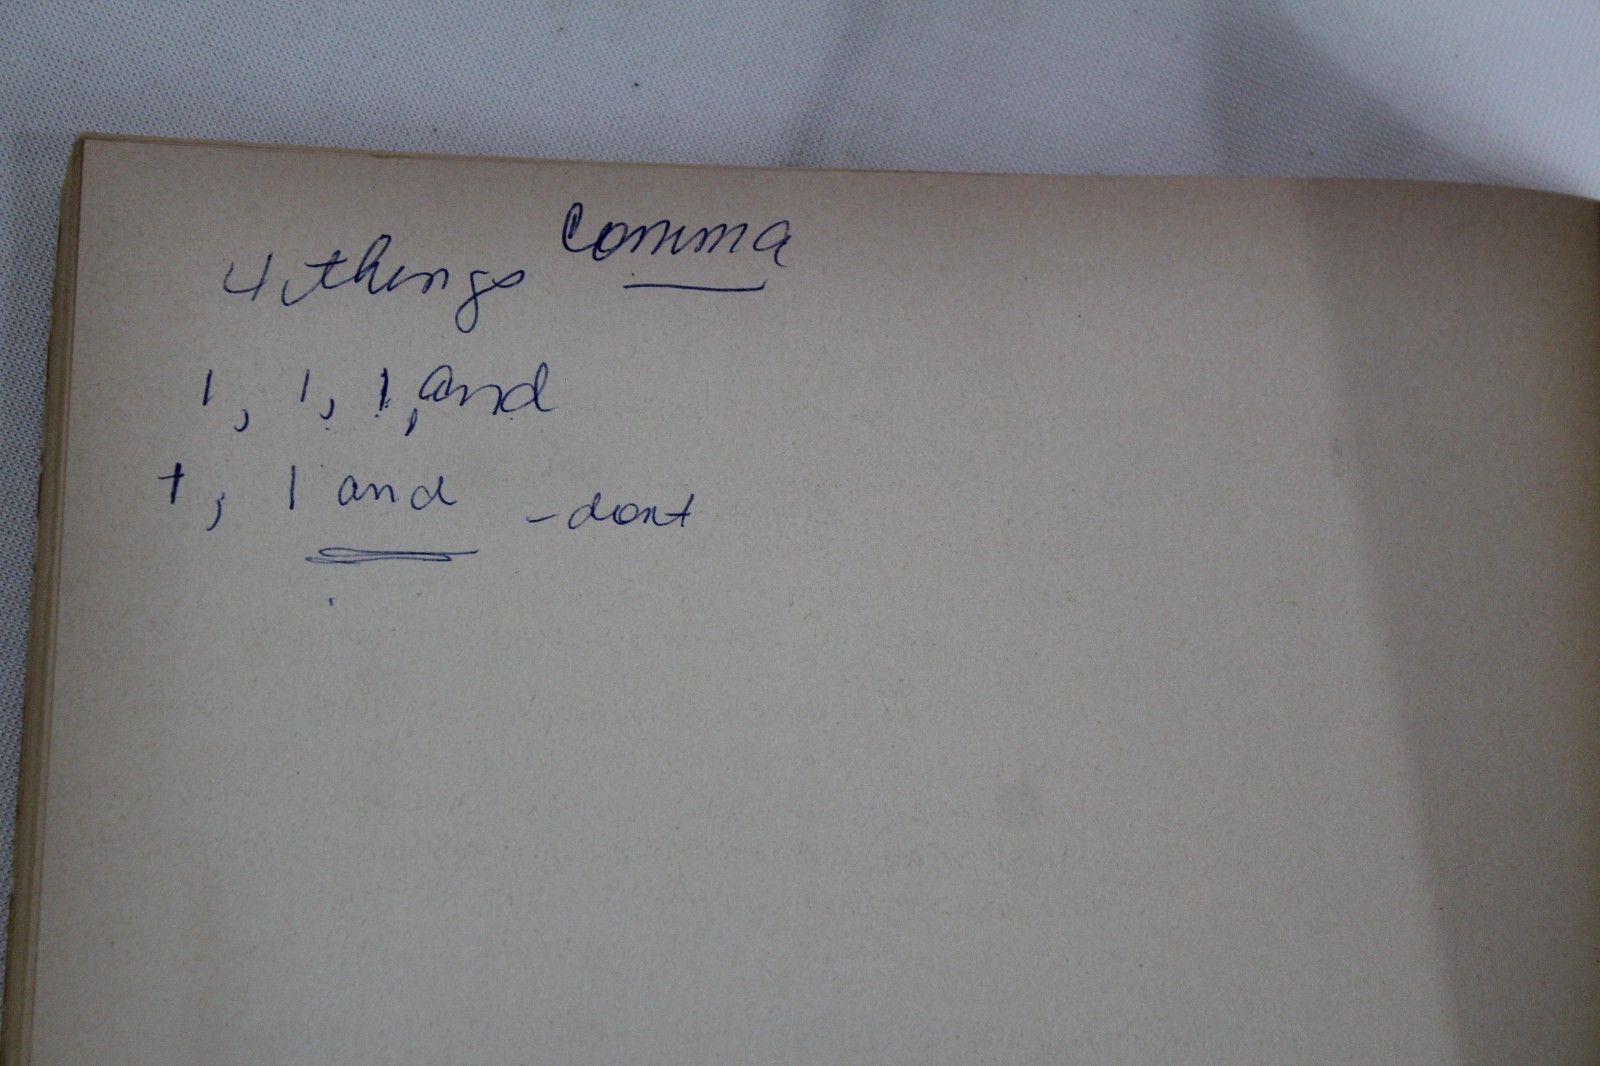 4 things comma
1, 1, 1, and
1, 1 and - dont